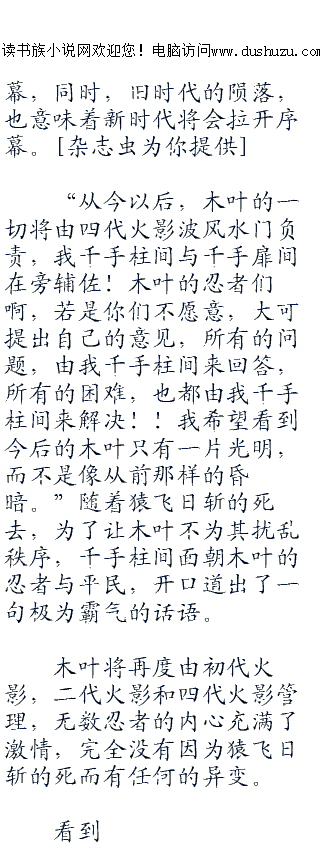 读书族小说网欢迎您！电脑访问www.dushuzu.com
幕，同时，旧时代的陨落，
也意味着新时代将会拉开序
幕。[杂志虫为你提供]
“从今以后，木叶的一
切将由四代火影波风水门负
责，我千手柱间与千手扉间
在旁辅佐！木叶的忍者们
啊，若是你们不愿意，大可
提出自己的意见，所有的问
题，由我千手柱间来回答，
所有的困难，也都由我千手
柱间来解决！！我希望看到
今后的木叶只有一片光明，
而不是像从前那样的昏
暗。”随着猿飞日斩的死
去，为了让木叶不为其扰乱
秩序，千手柱间面朝木叶的
忍者与平民，开口道出了一
句极为霸气的话语。
木叶将再度由初代火
影，二代火影和四代火影管
理，无数忍者的内心充满了
激情，完全没有因为猿飞日
斩的死而有任何的异变。
看到